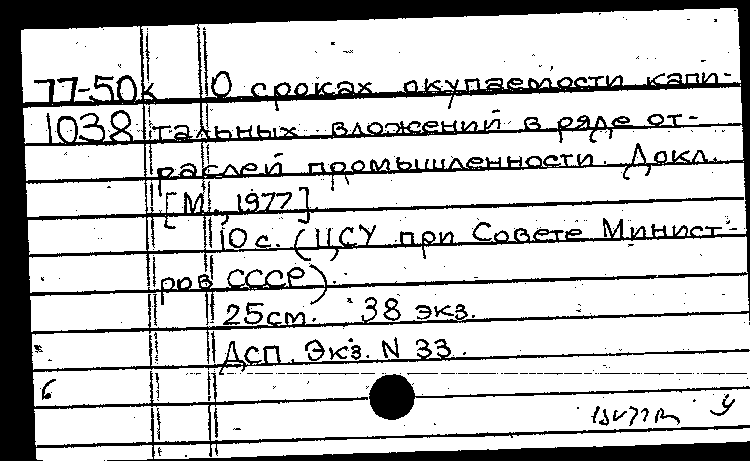 77-50к О сроках окупаемости капи-
1038 тальных вложений в ряде от-
раслей промышленности. Докл.
[М., 1977].
10 с. (ЦСУ при Совете Минист-
ров СССР).
25 см. 38 экз.
Дсп. Экз. N 33.
б